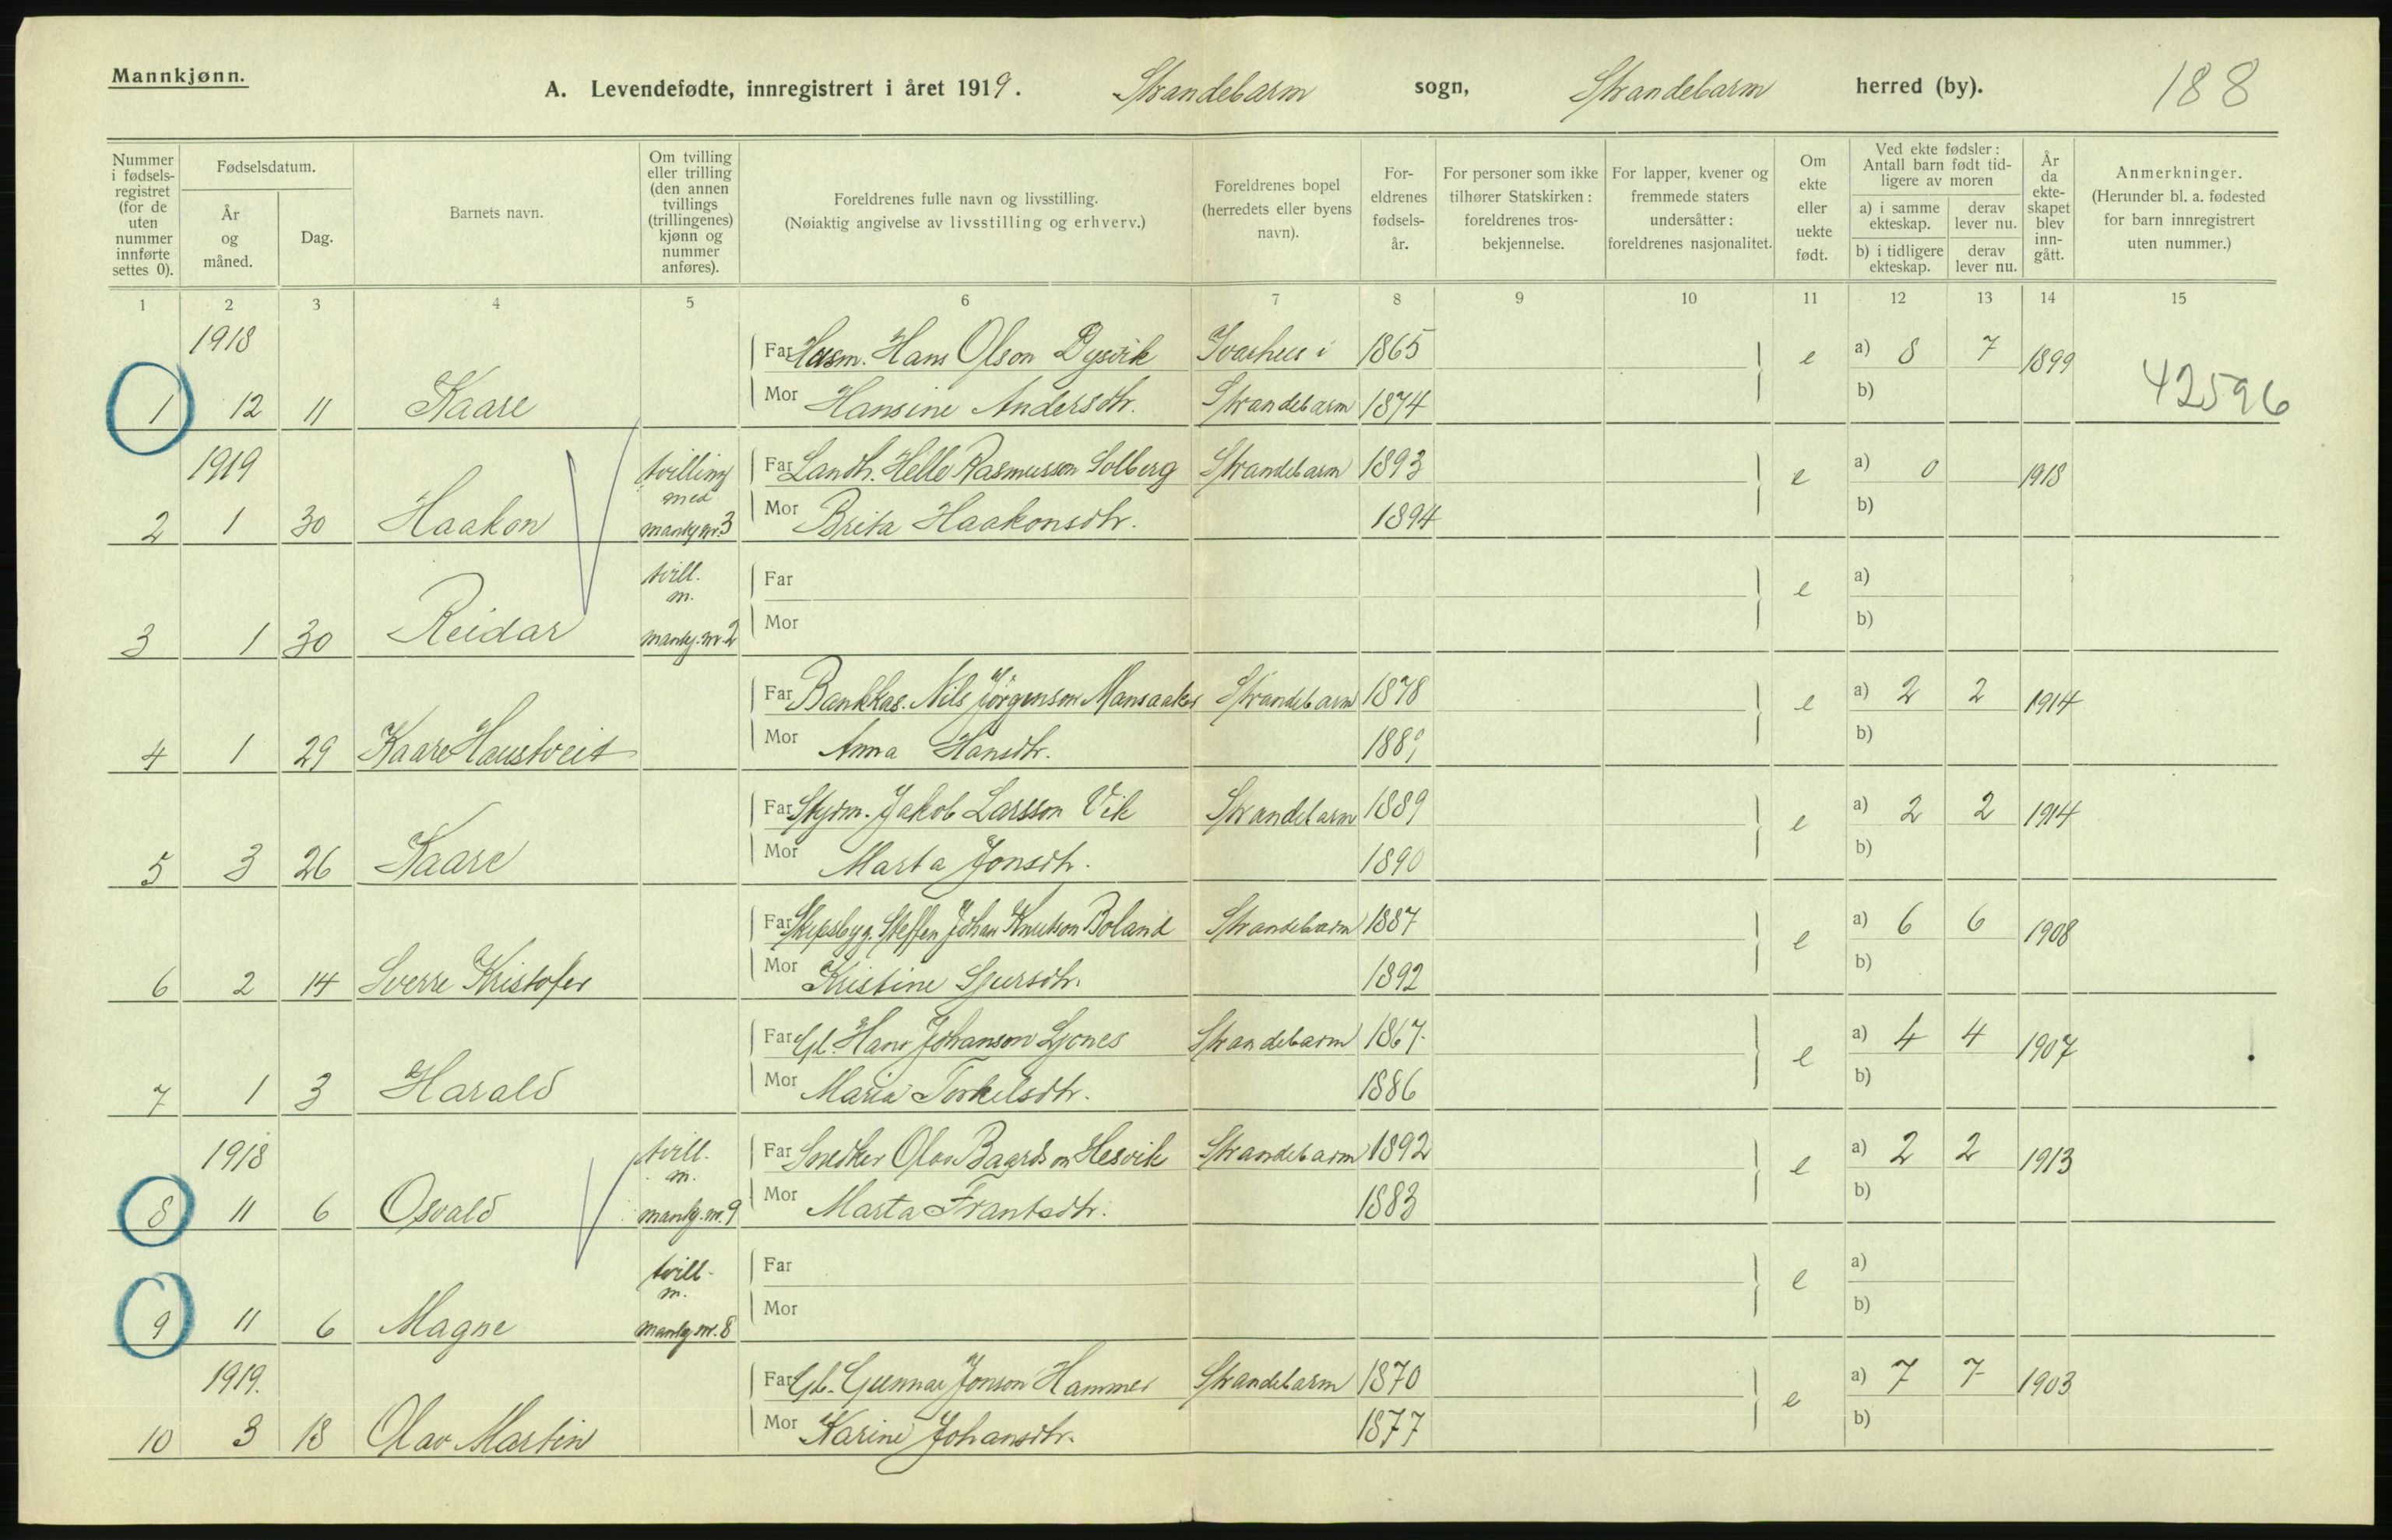 Mannkjønn.
A. Levendefødte, innregistrert i året 1919. Strandebarm sogn, Strandebarm herred (by). 188
Nummer i fødselsregistret (for de uten nummer innførte settes 0).
Fødselsdatum.
År og måned.
Dag.
Barnets navn.
Om tvilling eller trilling (den annen tvillings (trillingenes) kjønn og nummer anføres).
Foreldrenes fulle navn og livsstilling.
(Nøiaktig angivelse av livsstilling og erhverv.)
Foreldrenes bopel (herredets eller byens navn).
Foreldrenes fødselsår.
For personer som ikke tilhører Statskirken: foreldrenes trosbekjennelse.
For lapper, kvener og fremmede staters undersåtter: foreldrenes nasjonalitet.
Om ekte eller uekte født.
Ved ekte fødsler: Antall barn født tidligere av moren
a) i samme ekteskap.
derav lever nu.
b) i tidligere ekteskap.
derav lever nu.
År da ekteskapet blev inngått.
Anmerkninger.
(Herunder bl. a. fødested for barn innregistrert uten nummer.)
1 2 3 4 5 6 7 8 9 10 11 12 13 14 15
1918 Far Husm. Hans Olson Dysvik Ivarhus i 1865 e a) 8 7 1899
1 12 11 Kaare Mor Hansine Andersdtr. Strandebarm 1874 b) 42596
1919 tvilling med Far Landh. Helle Rasmusson Solberg Strandebarm 1893 e a) 0 1918
2 1 30 Haakon mankj nr. 3 Mor Brita Haakonsdtr. 1894 b)
tvill. m. Far e a)
3 1 30 Reidar mankj. nr. 2 Mor b)
Far Bankkas. Nils Jørgenson Mansaaker Strandebarm 1878 e a) 2 2 1914
4 1 29 Kaare Haustveit Mor Anna Hansdtr. 1889 b)
Far Styrm. Jakob Larsson Vik Strandebarm 1889 e a) 2 2 1914
5 3 26 Kaare Mor Marta Jonsdtr. 1890 b)
Far Skipsbyg. Steffen Johan Knutson Boland Strandebarm 1887 e a) 6 6 1908
6 2 14 Sverre Kristofer Mor Kristine Sjursdtr. 1892 b)
Far Gb. Hans Johanson Ljones Strandebarm 1867 e a) 4 4 1907
7 1 3 Harald Mor Maria Torkelsdtr. 1886 b)
1918 tvill. m. Far Snedker Olav Baardson Hesvik Strandebarm 1892 e a) 2 2 1913
8 11 6 Osvald mankj. nr. 9 Mor Marta Frantsdtr. 1883 b)
tvill. m. Far e a)
9 11 6 Magne mankj nr. 8 Mor b)
1919. Far Gb. Gunnar Jonson Hammer Strandebarm 1870 e a) 7 7 1903
10 3 18 Olav Martin Mor Karine Johansdtr. 1877 b)